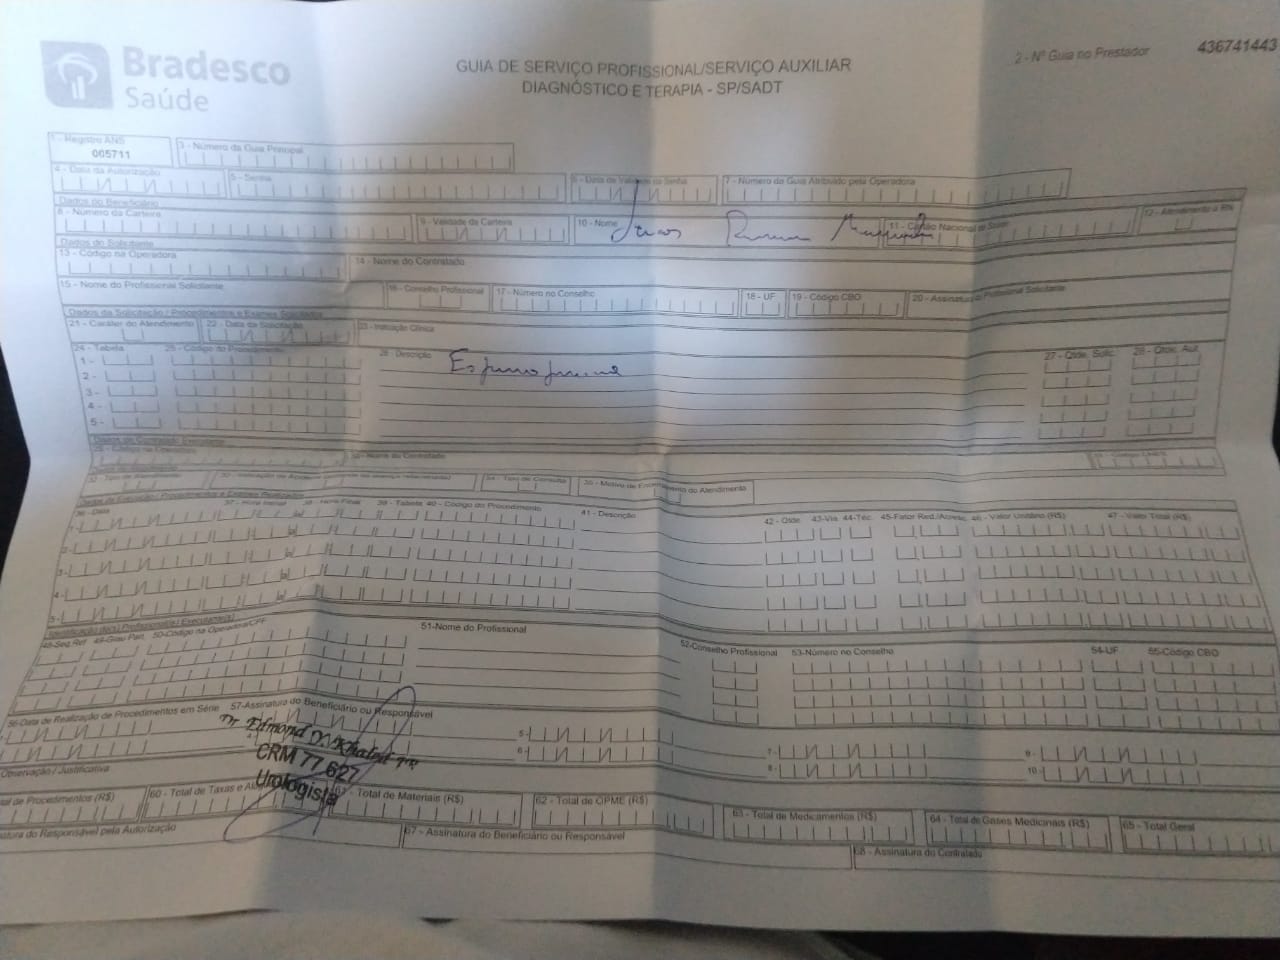 Bradesco
Saúde
GUIA DE SERVIÇO PROFISSIONAL/SERVIÇO AUXILIAR
DIAGNÓSTICO E TERAPIA - SP/SADT
2 - Nº Guia no Prestador 436741443
1 - Registro ANS
005711
3 - Número da Guia Principal
4 - Data da Autorização
5 - Senha
6 - Data de Validade da Senha
7 - Número da Guia Atribuído pela Operadora
Dados do Beneficiário
8 - Número da Carteira
9 - Validade da Carteira
10 - Nome
11 - Cartão Nacional de Saúde
12 - Atendimento a RN
Dados do Solicitante
13 - Código na Operadora
14 - Nome do Contratado
15 - Nome do Profissional Solicitante
16 - Conselho Profissional
17 - Número no Conselho
18 - UF
19 - Código CBO
20 - Assinatura do Profissional Solicitante
Dados da Solicitação / Procedimentos e Exames Solicitados
21 - Caráter do Atendimento
22 - Data da Solicitação
23 - Indicação Clínica
24 - Tabela
25 - Código do Procedimento
26 - Descrição
27 - Qtde. Solic.
28 - Qtde. Aut.
1 -
2 -
3 -
4 -
5 -
Espermograma
Dados do Contratado Executante
29 - Código na Operadora
30 - Nome do Contratado
31 - Código CNES
32 - Tipo de Atendimento
34 - Tipo de Consulta
35 - Motivo de Encerramento do Atendimento
Dados da Execução / Procedimentos e Exames Realizados
36 - Data
37 - Hora Inicial
38 - Hora Final
39 - Tabela
40 - Código do Procedimento
41 - Descrição
42 - Qtde
43-Via
44-Téc.
45-Fator Red./Acrésc.
46 - Valor Unitário (R$)
47 - Valor Total (R$)
1-
2-
3-
4-
5-
Identificação do(s) Profissional(is) Executante(s)
48-Seq.Ref
49-Grau Part.
50-Código na Operadora/CPF
51-Nome do Profissional
52-Conselho Profissional
53-Número no Conselho
54-UF
55-Código CBO
56-Data de Realização de Procedimentos em Série
57-Assinatura do Beneficiário ou Responsável
5-
6-
7-
8-
9-
10-
Observação / Justificativa
CRM 77.627
Urologista
al de Procedimentos (R$)
60 - Total de Taxas e
61 - Total de Materiais (R$)
62 - Total de OPME (R$)
63 - Total de Medicamentos (R$)
64 - Total de Gases Medicinais (R$)
65 - Total Geral
atura do Responsável pela Autorização
67 - Assinatura do Beneficiário ou Responsável
68 - Assinatura do Contratado